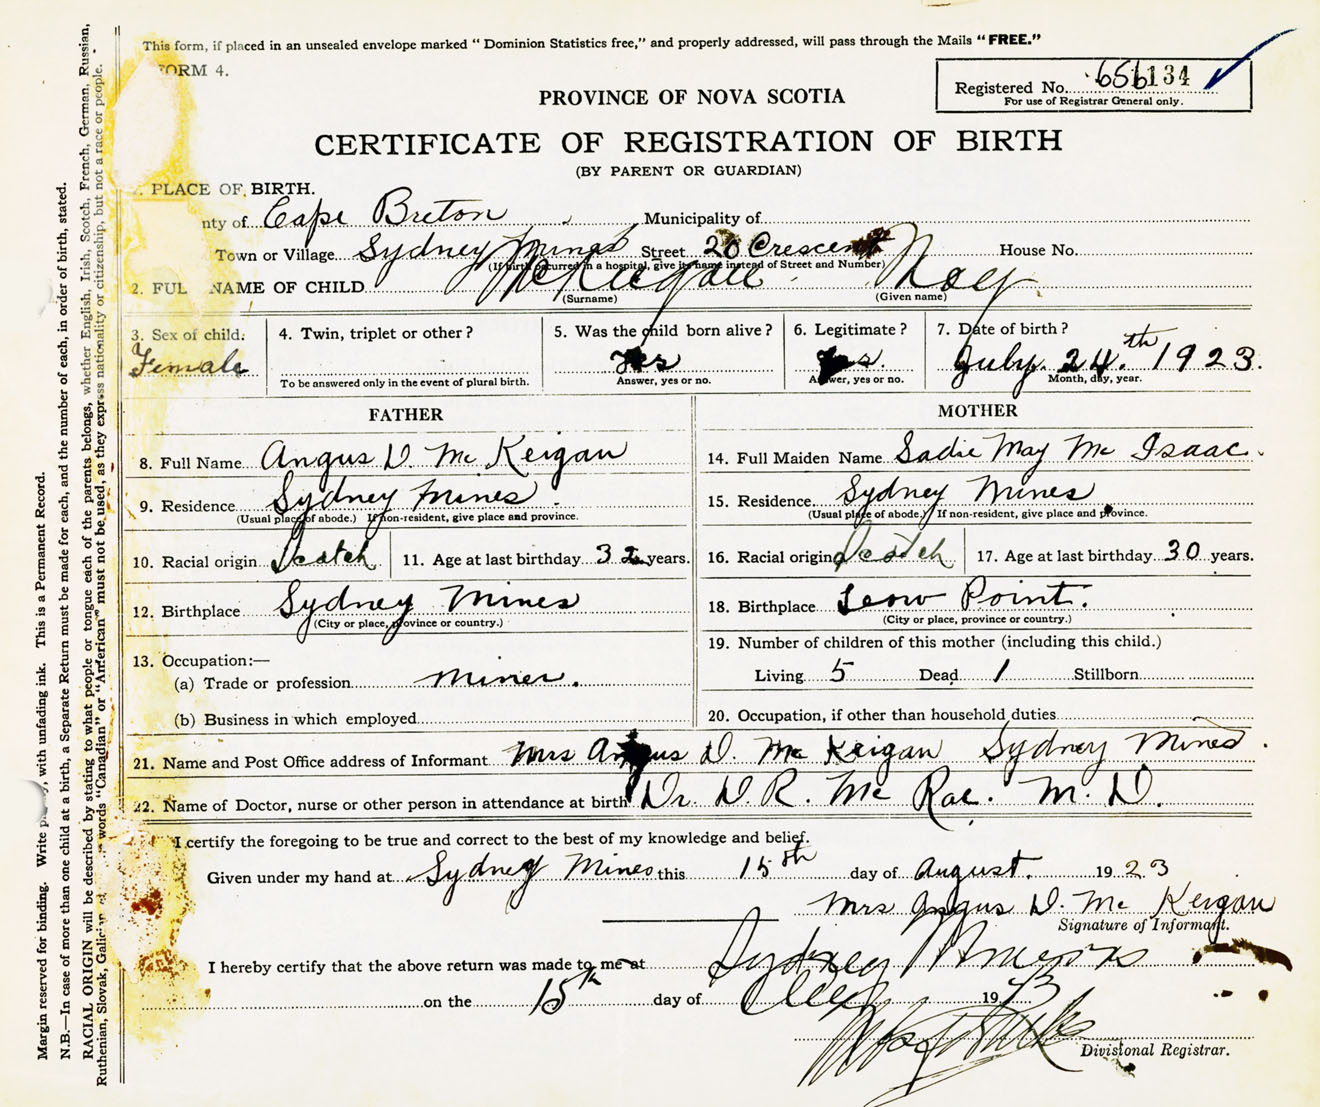 This form, if placed in an unsealed envelope marked “ Dominion Statistics free,” and properly addressed, will pass through the Mails “FREE.”
FORM 4.
Registered No. 656134
For use of Registrar General only.
PROVINCE OF NOVA SCOTIA
CERTIFICATE OF REGISTRATION OF BIRTH
(BY PARENT OR GUARDIAN)
PLACE OF BIRTH.
nty of Cape Breton Municipality of
Town or Village Sydney Mines Street 20 Crescent House No.
(If birth occurred in a hospital, give its name instead of Street and Number)
2. FUL NAME OF CHILD McKeigan
(Surname) (Given name)
3. Sex of child. 4. Twin, triplet or other ? 5. Was the child born alive ? 6. Legitimate ? 7. Date of birth ?
Female Yes Yes. July. 24.th 1923.
To be answered only in the event of plural birth. Answer, yes or no. Answer, yes or no. Month, day, year.
FATHER
8. Full Name Angus D. Mc Keigan
9. Residence Sydney Mines
(Usual place of abode.) If non-resident, give place and province.
10. Racial origin Scotch 11. Age at last birthday 32 years.
12. Birthplace Sydney Mines
(City or place, province or country.)
13. Occupation:—
(a) Trade or profession miner.
(b) Business in which employed
MOTHER
14. Full Maiden Name Sadie May Mc Isaac.
15. Residence Sydney Mines
(Usual place of abode.) If non-resident, give place and province.
16. Racial origin Scotch 17. Age at last birthday 30 years.
18. Birthplace Point.
(City or place, province or country.)
19. Number of children of this mother (including this child.)
Living 5 Dead 1 Stillborn
20. Occupation, if other than household duties
21. Name and Post Office address of Informant Mrs Angus D. Mc Keigan Sydney Mines.
22. Name of Doctor, nurse or other person in attendance at birth Dr. D. R. Mc Rae. M. D.
I certify the foregoing to be true and correct to the best of my knowledge and belief.
Given under my hand at Sydney Mines this 15th day of August. 1923
Mrs Angus D. Mc Keigan
Signature of Informant.
I hereby certify that the above return was made to me at Sydney Mines
on the 15th day of Aug 1923
Divisional Registrar.
Margin reserved for binding. Write , with unfading ink. This is a Permanent Record.
N.B.—In case of more than one child at a birth, a Separate Return must be made for each, and the number of each, in order of birth, stated.
RACIAL ORIGIN will be described by stating to what people or tongue each of the parents belongs, whether English, Irish, Scotch, French, German, Russian,
Ruthenian, Slovak, Galician words “Canadian” or “American” must not be used, as they express nationality or citizenship, but not a race or people.